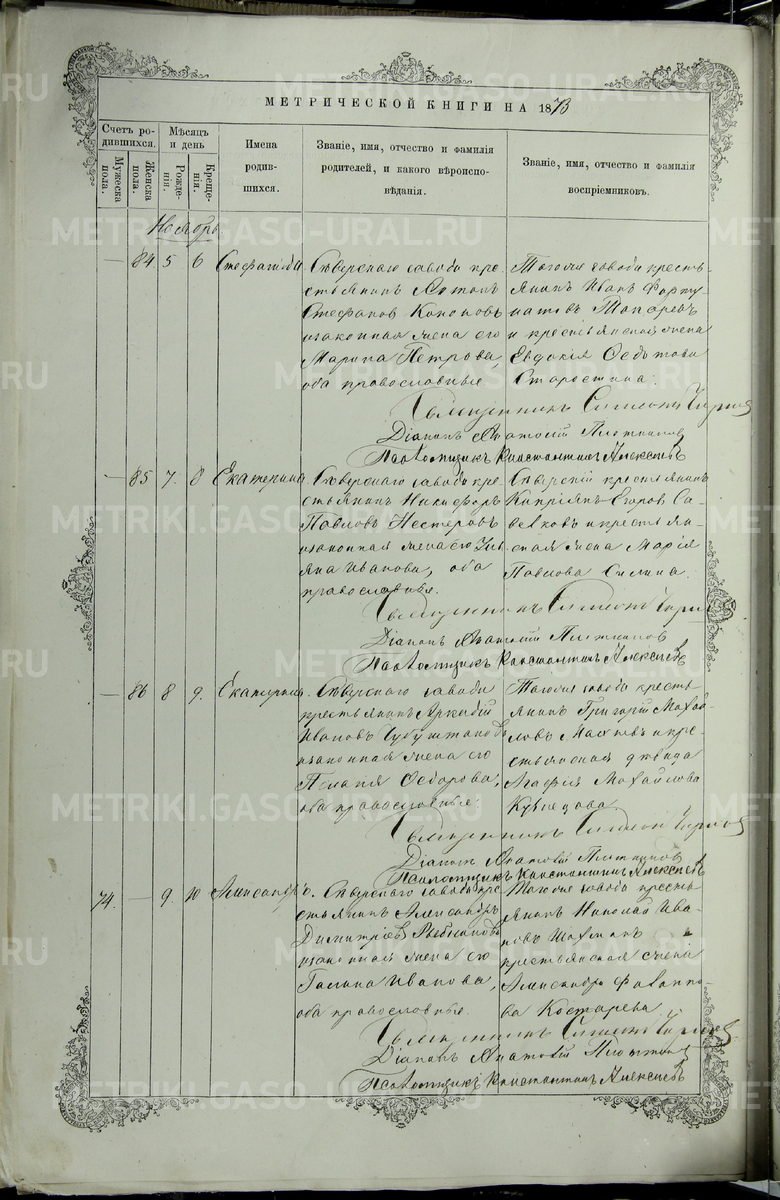 МЕТРИЧЕСКОЙ КНИГИ НА 1873
Счетъ ро-
дившихся.
Мужеска
пола.
Женска
пола.
Мѣсяцъ
и день
Рожде-
нія.
Креще-
нія.
Имена
родив-
шихся.
Званіе, имя, отчество и фамилія
родителей, и какого вѣроиспо-
вѣданія.
Званіе, имя, отчество и фамилія
воспріемниковъ.
Ноябрь
— 84 5 6
Сѣверскаго завода кре-
стьянинъ Антонъ
Стефановъ Кононовъ
и законная жена его
Марина Петрова,
оба православные
Тогоже завода кресть-
янинъ Иванъ Форту-
натовъ Токаревъ
и крестьянская жена
Евдокія Ѳедотова
Старостина.
Священникъ Симеонъ
Діаконъ Анатолій Плотниковъ
Псаломщикъ Константинъ Алексѣевъ
— 85 7. 8 Екатерина
Сѣверскаго завода кре-
стьянинъ Никифоръ
Павловъ Нестеровъ
и законная жена его Улі-
яна Иванова, оба
православные.
Сѣверскій крестьянинъ
Кипріянъ Егоровъ Са-
велковъ и крестьян-
ская жена Марія
Павлова Силина.
Священникъ Симеонъ
Діаконъ Анатолій Плотниковъ
Псаломщикъ Константинъ Алексѣевъ
— 86 8 9. Екатерина.
Сѣверскаго завода
крестьянинъ Аркадій
Ивановъ
и законная жена его
Пелагія Ѳедорова,
оба православные.
Тогоже завода кресть-
янинъ Григорій Михай-
ловъ и кре-
стьянская дѣвица
Агафія Михайлова
Священникъ Симеонъ
Діаконъ Анатолій Плотниковъ
Псаломщикъ Константинъ Алексѣевъ
74. — 9. 10 Александръ.
Сѣверскаго завода кре-
стьянинъ Александръ
Димитріевъ
и законная жена его
Галина Иванова,
оба православные.
Тогоже завода кресть-
янинъ Николай Ива-
новъ Шахминъ
крестьянская жена
Александра
Костарева
Священникъ Симеонъ
Діаконъ Анатолій Плотниковъ
Псаломщикъ Константинъ Алексѣевъ
METRIKI.GASO-URAL.RU